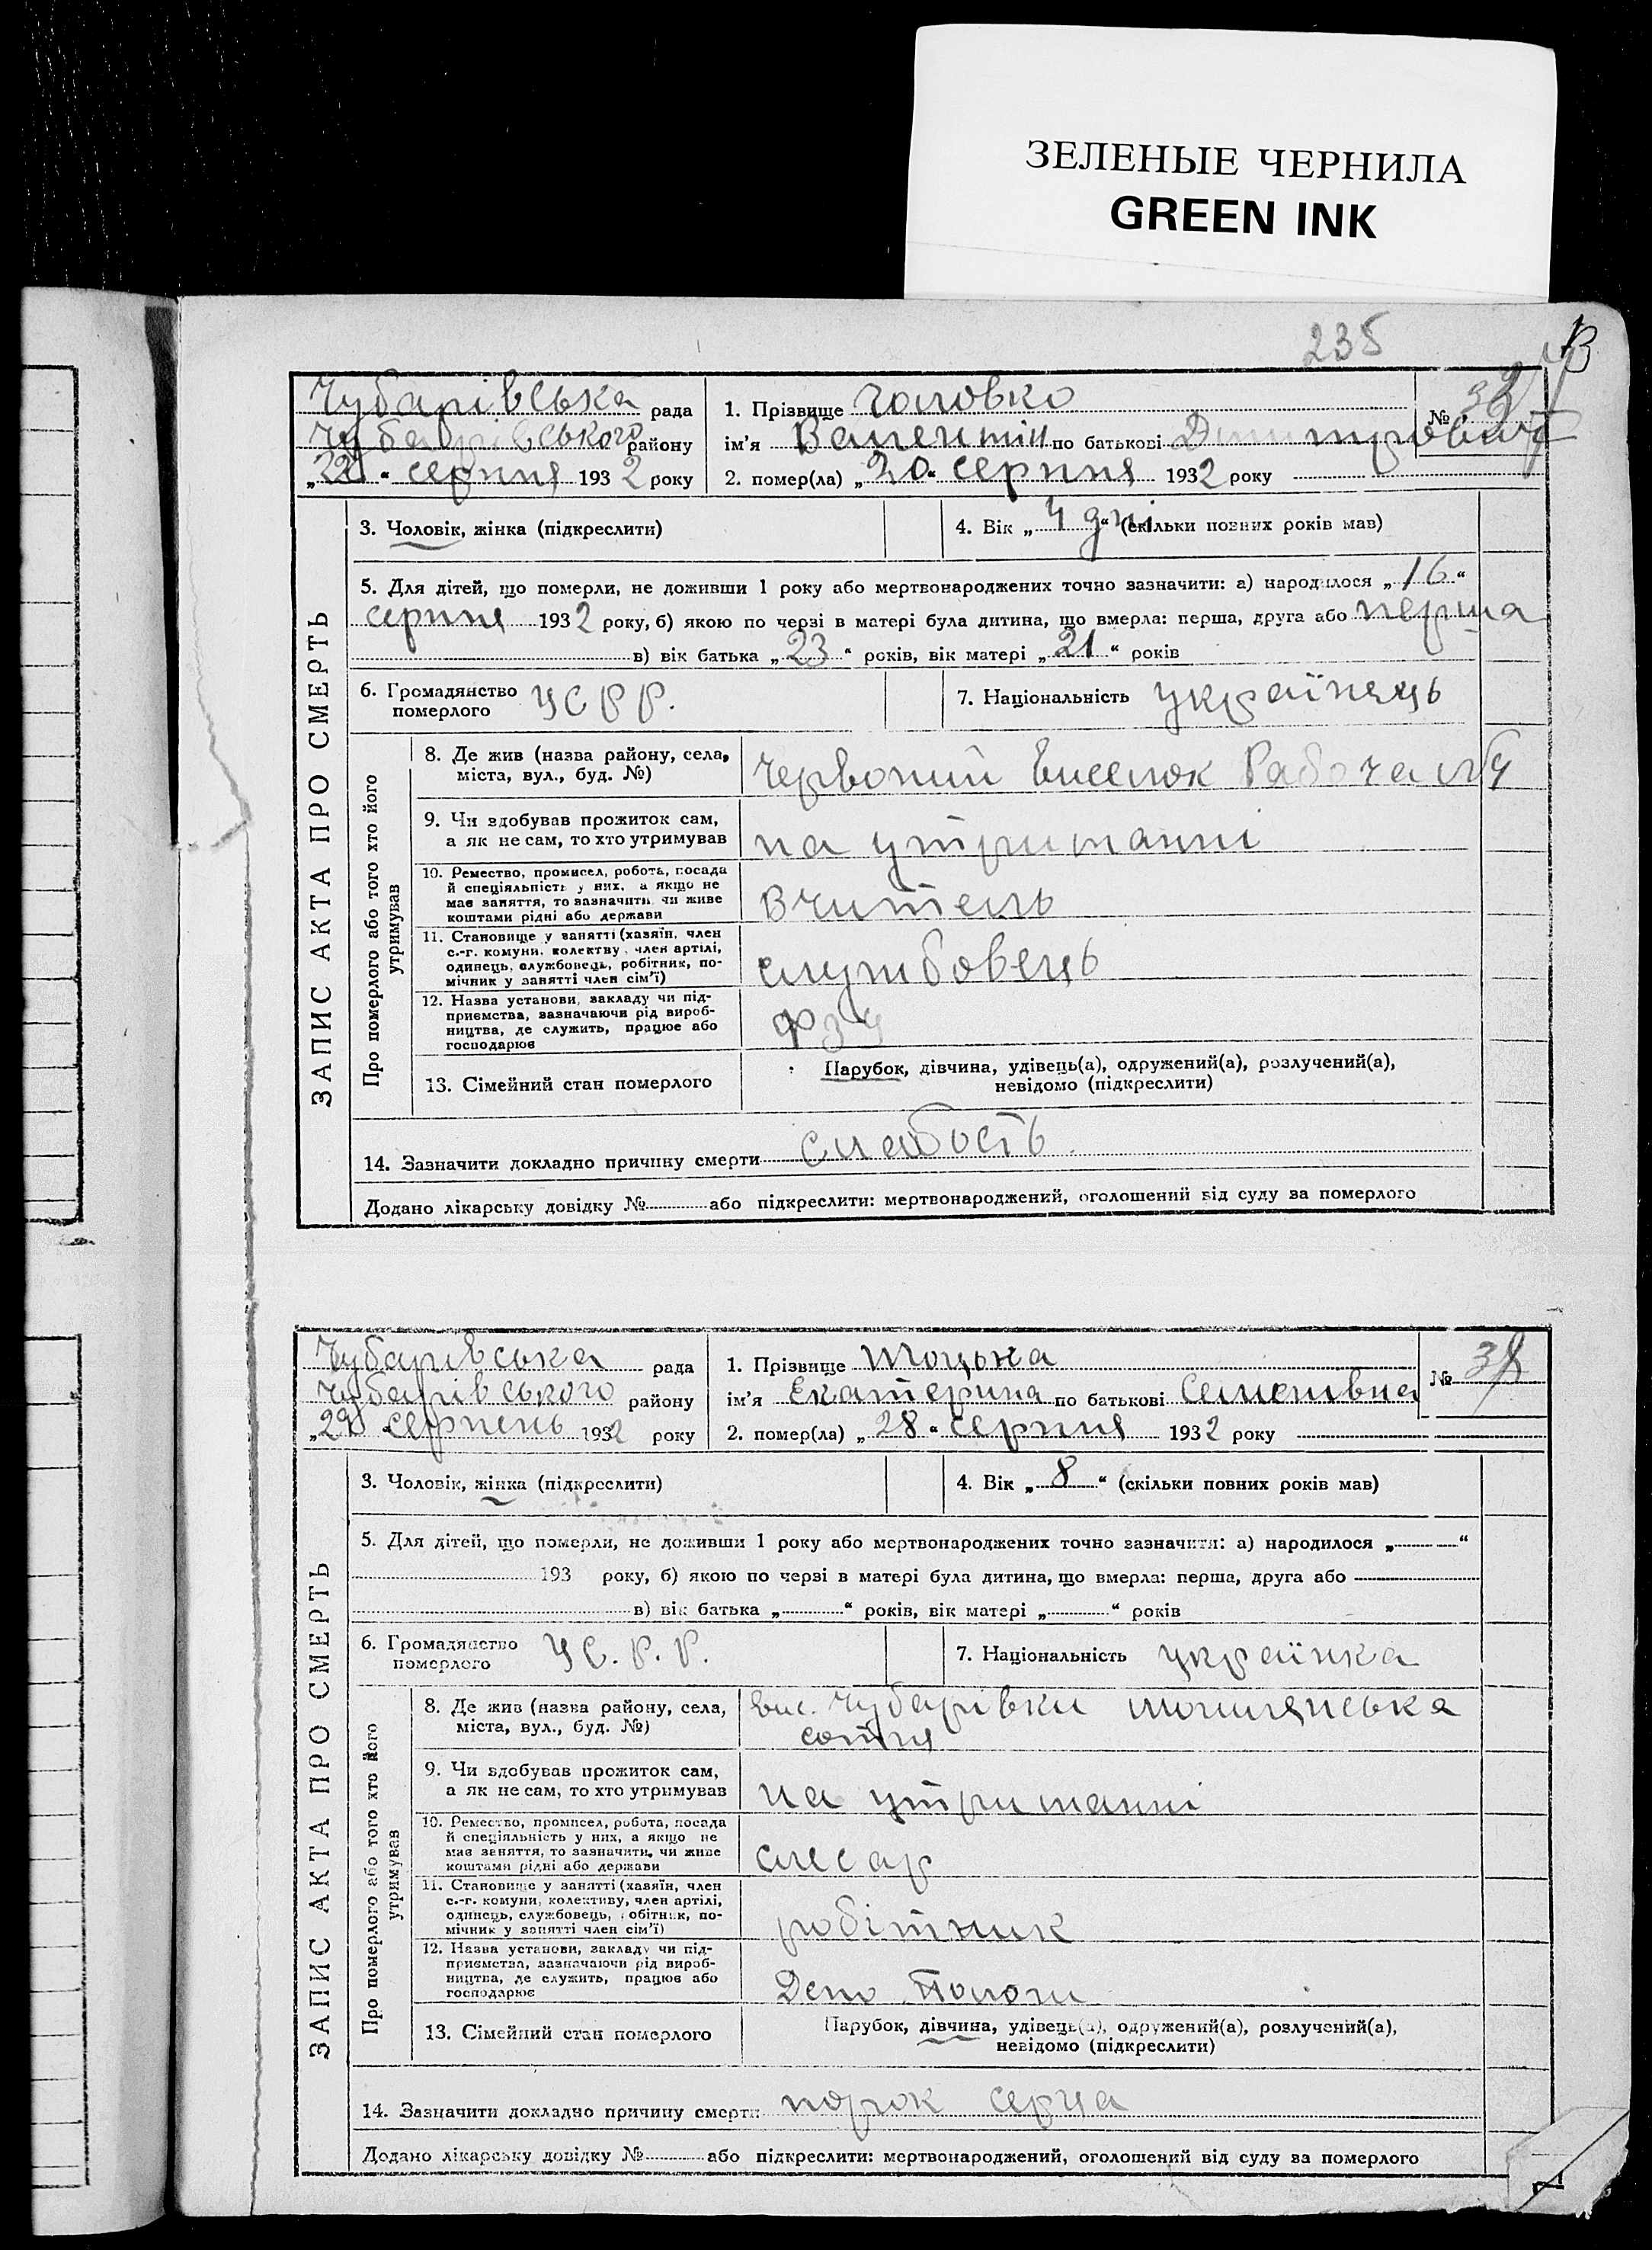 ЗЕЛЕНЫЕ ЧЕРНИЛА
GREEN INK
235
Чубарівська рада
Чубарівського району
„22“ серпня 1932 року
1. Прізвище Головко
№
ім'я Валентін по батькові Дмитрович
2. помер(ла) „20“ серпня 1932 року
ЗАПИС АКТА ПРО СМЕРТЬ
3. Чоловік, жінка (підкреслити)
4. Вік „4 дні“ (скільки повних років мав)
5. Для дітей, що померли, не доживши 1 року або мертвонароджених точно зазначити: а) народилося „16“
серпня 1932 року, б) якою по черзі в матері була дитина, що вмерла: перша, друга або перша
в) вік батька „23“ років, вік матері „21“ років
6. Громадянство
померлого
УСРР.
7. Національність українець
Про померлого або того хто його
утримував
8. Де жив (назва району, села,
міста, вул., буд. №)
Червоний виселок Рабоча №4
9. Чи здобував прожиток сам,
а як не сам, то хто утримував
на утриманні
10. Ремество, промисел, робота, посада
й спеціяльність у них, а якщо не
має заняття, то зазначити чи живе
коштами рідні або держави
вчитель
11. Становище у занятті (хазяїн, член
с.-г. комуни, колективу, член артілі,
одинець, службовець, робітник, по-
мічник у занятті член сім'ї)
службовець
12. Назва установи, закладу чи під-
приємства, зазначаючи рід вироб-
ництва, де служить, працює або
господарює
ФЗУ
13. Сімейний стан померлого
Парубок, дівчина, удівець(а), одружений(а), розлучений(а),
невідомо (підкреслити)
14. Зазначити докладно причину смерти слабость
Додано лікарську довідку № або підкреслити: мертвонароджений, оголошений від суду за померлого
Чубарівська рада
Чубарівського району
„29“ серпень 1932 року
1. Прізвище
№
ім'я Екатерина по батькові Семенівна
2. помер(ла) „28“ серпня 1932 року
ЗАПИС АКТА ПРО СМЕРТЬ
3. Чоловік, жінка (підкреслити)
4. Вік „8“ (скільки повних років мав)
5. Для дітей, що померли, не доживши 1 року або мертвонароджених точно зазначити: а) народилося „ “
193 року, б) якою по черзі в матері була дитина, що вмерла: перша, друга або
в) вік батька „ “ років, вік матері „ “ років
6. Громадянство
померлого
УС.Р.Р.
7. Національність українка
Про померлого або того хто його
утримував
8. Де жив (назва району, села,
міста, вул., буд. №)
вис. Чубарівки
сотня
9. Чи здобував прожиток сам,
а як не сам, то хто утримував
на утриманні
10. Ремество, промисел, робота, посада
й спеціяльність у них, а якщо не
має заняття, то зазначити, чи живе
коштами рідні або держави
слесар
11. Становище у занятті (хазяїн, член
с.-г. комуни, колективу, член артілі,
одинець, службовець, робітник, по-
мічник у занятті член сім'ї)
робітник
12. Назва установи, закладу чи під-
приємства, зазначаючи рід вироб-
ництва, де служить, працює або
господарює
Депо Пологи
13. Сімейний стан померлого
Парубок, дівчина, удівець(а), одружений(а), розлучений(а),
невідомо (підкреслити)
14. Зазначити докладно причину смерти порок серца
Додано лікарську довідку № або підкреслити: мертвонароджений, оголошений від суду за померлого